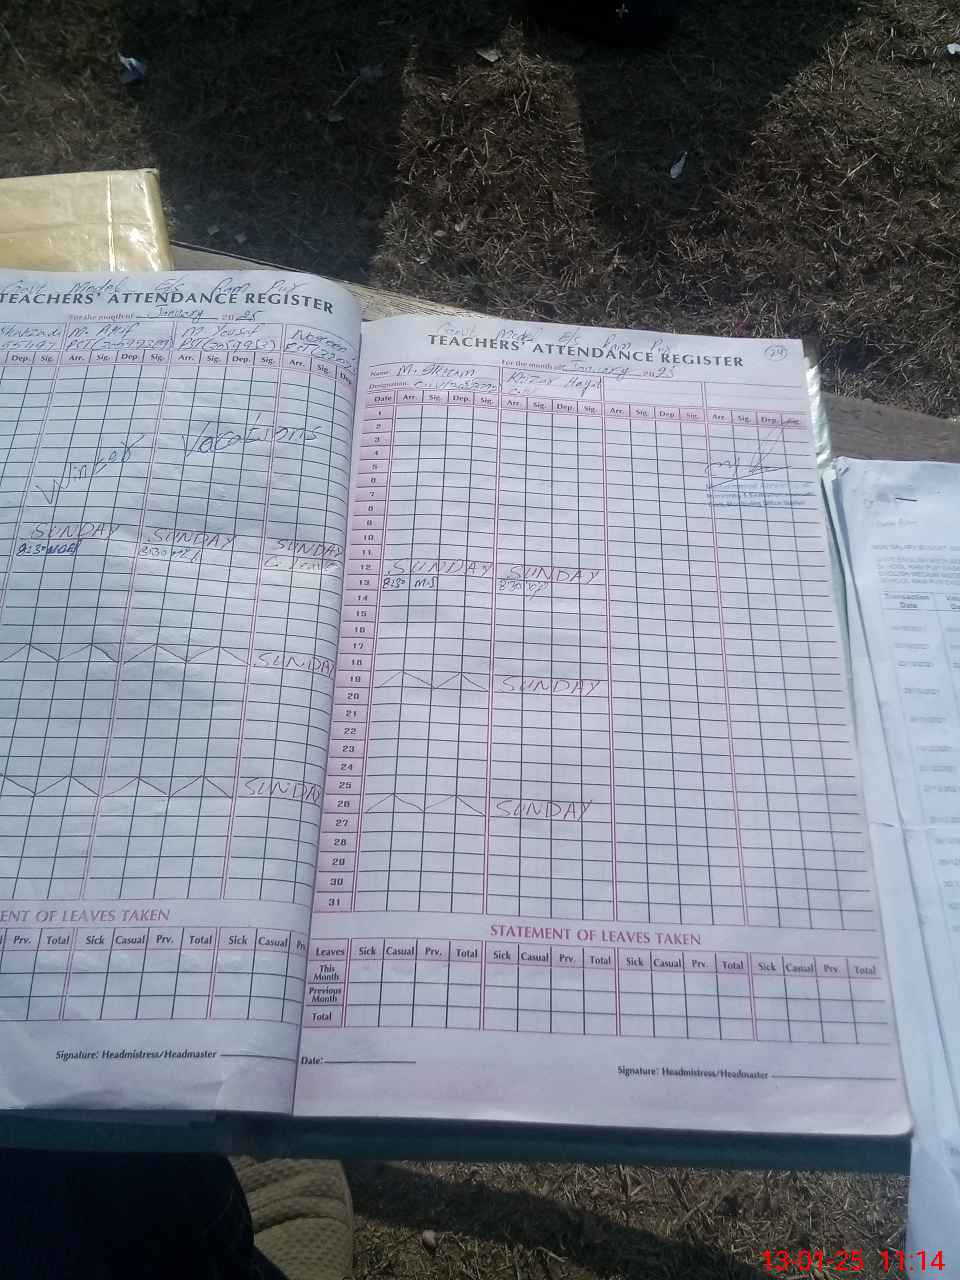 Govt Model E/S Ram Pur
TEACHERS' ATTENDANCE REGISTER
For the month of January 2025
M. Arif
M. Yousaf
Dep. Sig. Arr. Sig. Dep. Sig. Arr. Sig. Dep. Sig. Arr. Sig. Dep.
Winter Vacations
SUNDAY SUNDAY SUNDAY
8:30
8:30
C. Leave
SUNDAY
SUNDAY
ENT OF LEAVES TAKEN
Prv. Total Sick Casual Prv. Total Sick Casual Prv.
Signature: Headmistress/Headmaster
Govt Model E/S Ram Pur
TEACHERS' ATTENDANCE REGISTER
24
For the month of January 2025
Name M. Akram
Khizar Hayat
Designation
Date Arr. Sig. Dep. Sig. Arr. Sig. Dep. Sig. Arr. Sig. Dep. Sig. Arr. Sig. Dep. Sig.
1
2
3
4
5
6
7
8
9
10
11
12 SUNDAY SUNDAY
13 8:30 M.S 8:30
14
15
16
17
18
19 SUNDAY
20
21
22
23
24
25
26 SUNDAY
27
28
29
30
31
STATEMENT OF LEAVES TAKEN
Leaves Sick Casual Prv. Total Sick Casual Prv. Total Sick Casual Prv. Total Sick Casual Prv. Total
This Month
Previous Month
Total
Date:
Signature: Headmistress/Headmaster
Transaction
Date
13-01-25 11:14